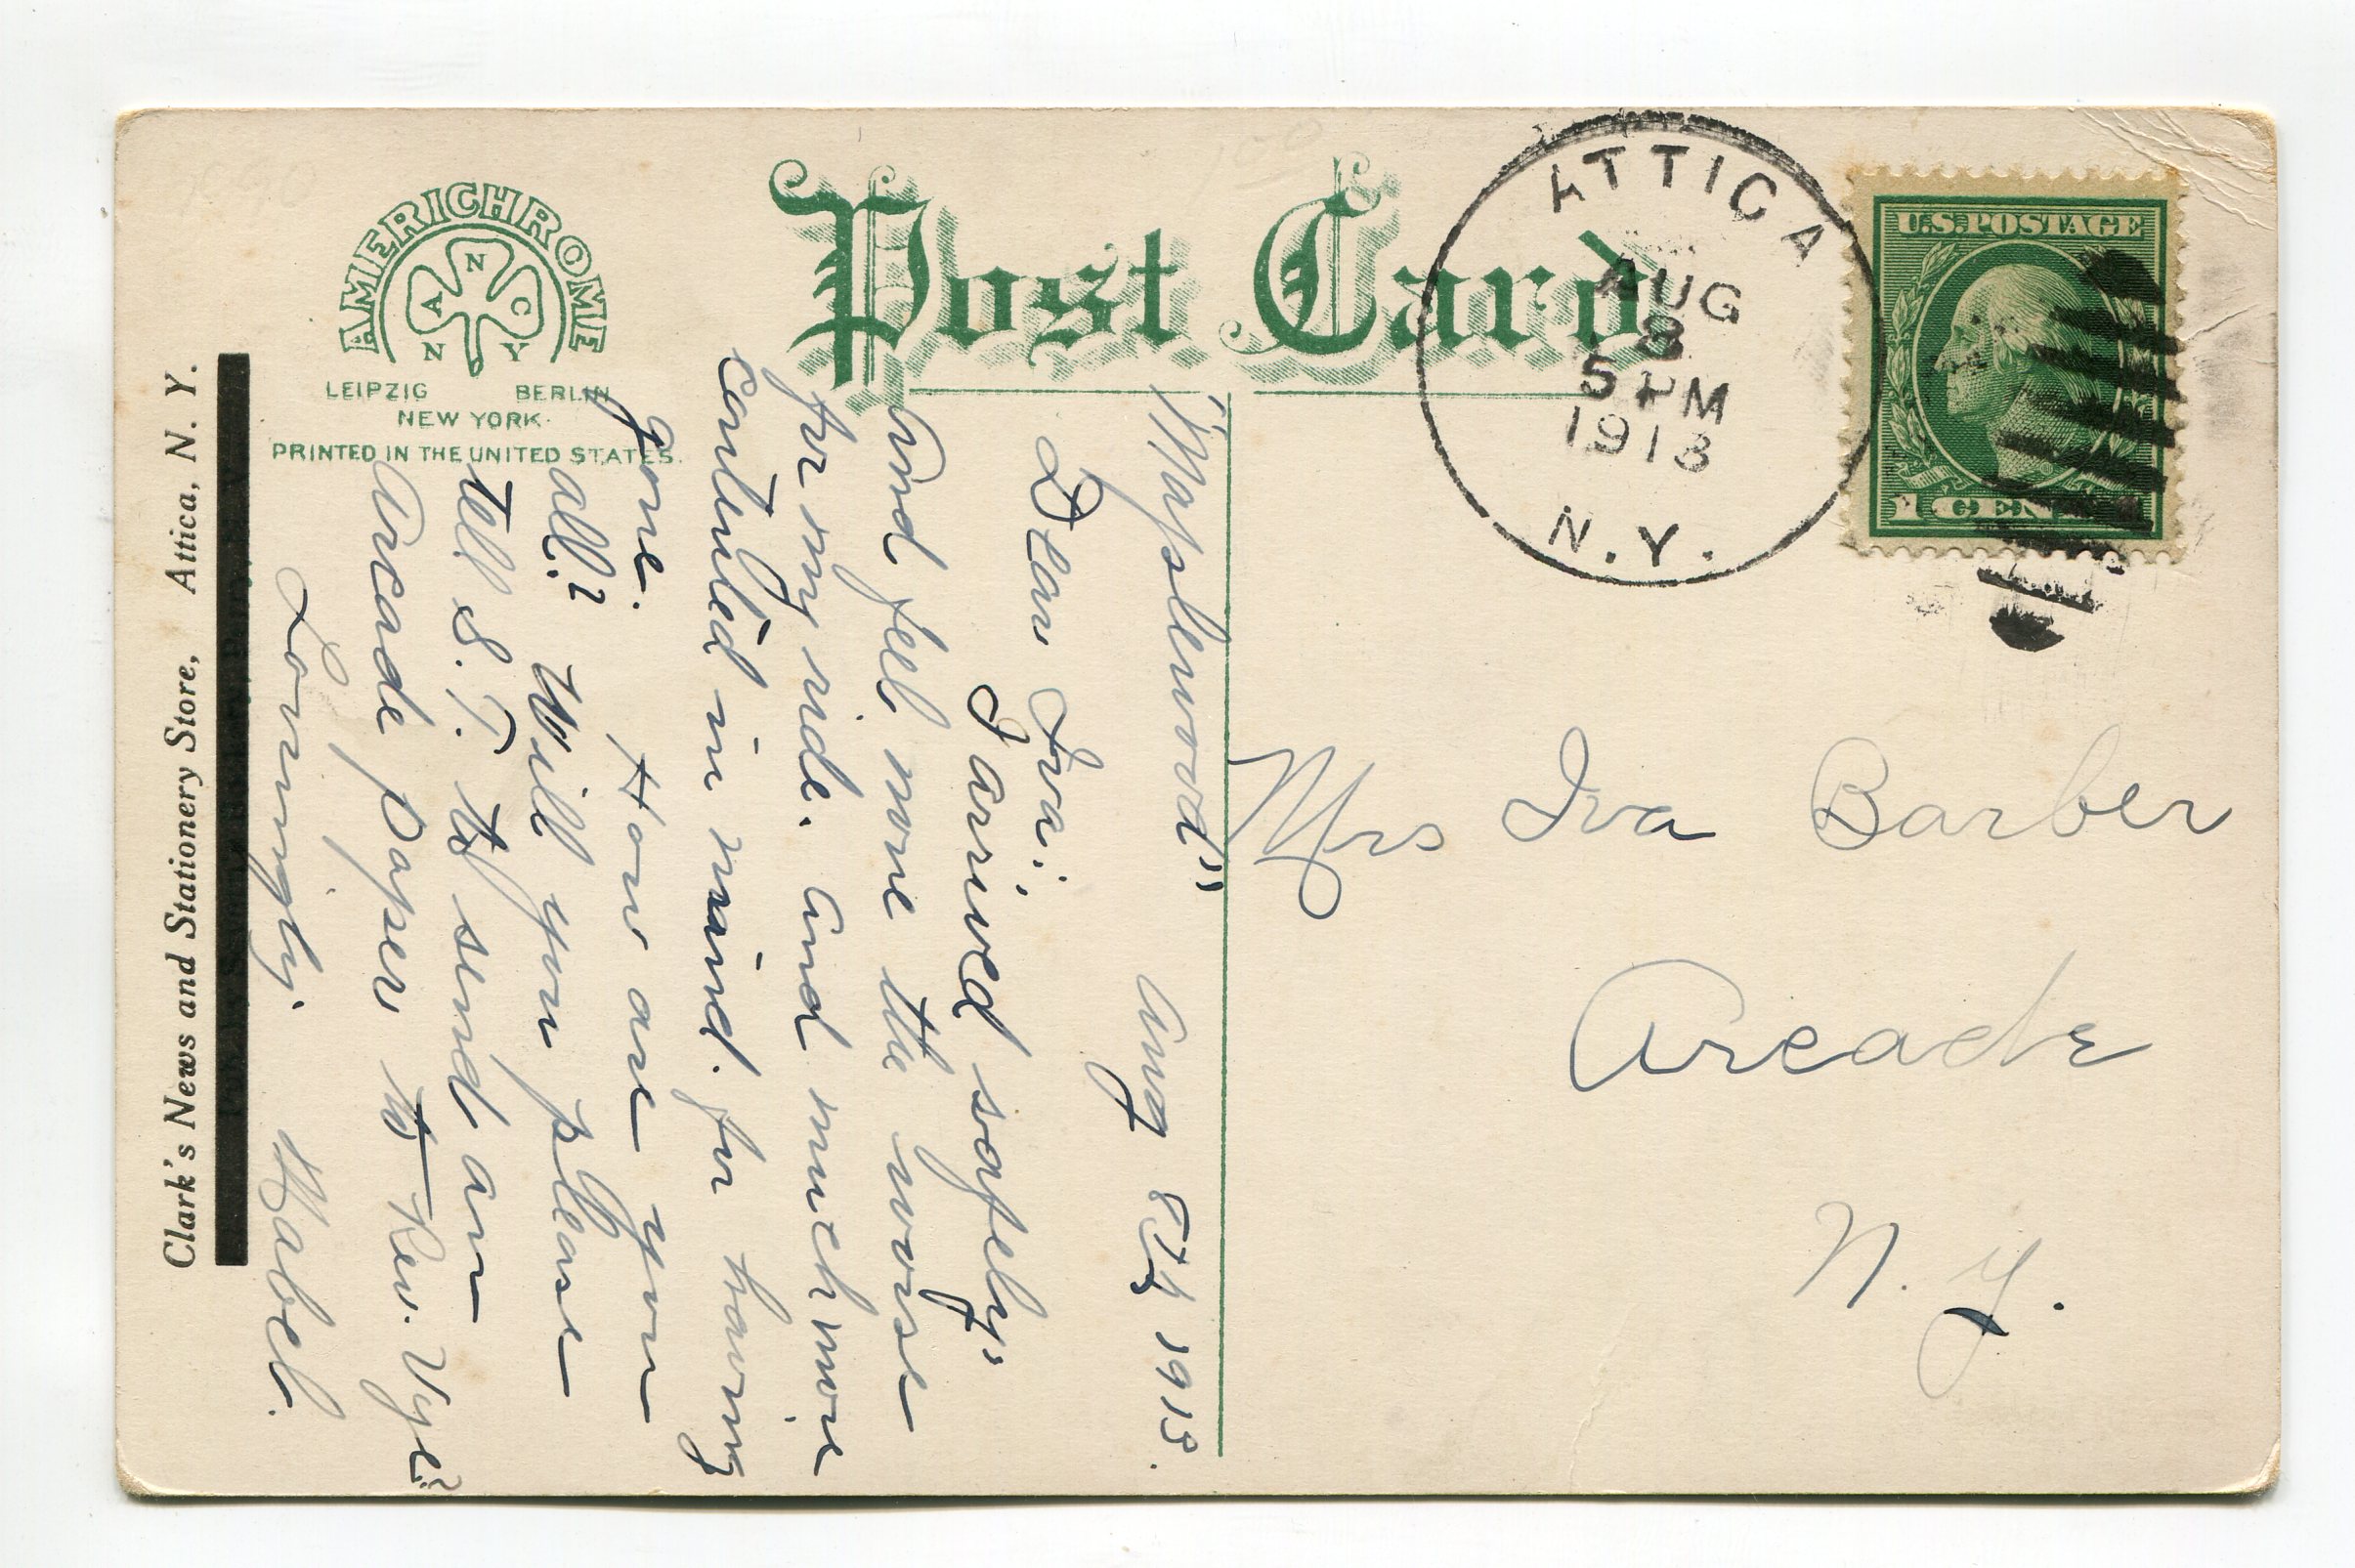 AMERICHROME
A N C
N Y
LEIPZIG BERLIN
NEW YORK
PRINTED IN THE UNITED STATES.
Post Card
ATTICA
AUG
8
5 PM
1913
N.Y.
U.S. POSTAGE
1 CENT
"Maplewood" Aug 8th 1913.
Dear Iva:,
I arrived safely,
And feel none the worse
for my ride. And much more
contented in mind. for having
gone. How are you
all? Will you please
tell S. T. to send an
Arcade paper to Rev. Vye?
Lovingly. Mabel.
Mrs Iva Barber
Arcade
N. Y.
Clark's News and Stationery Store, Attica, N. Y.